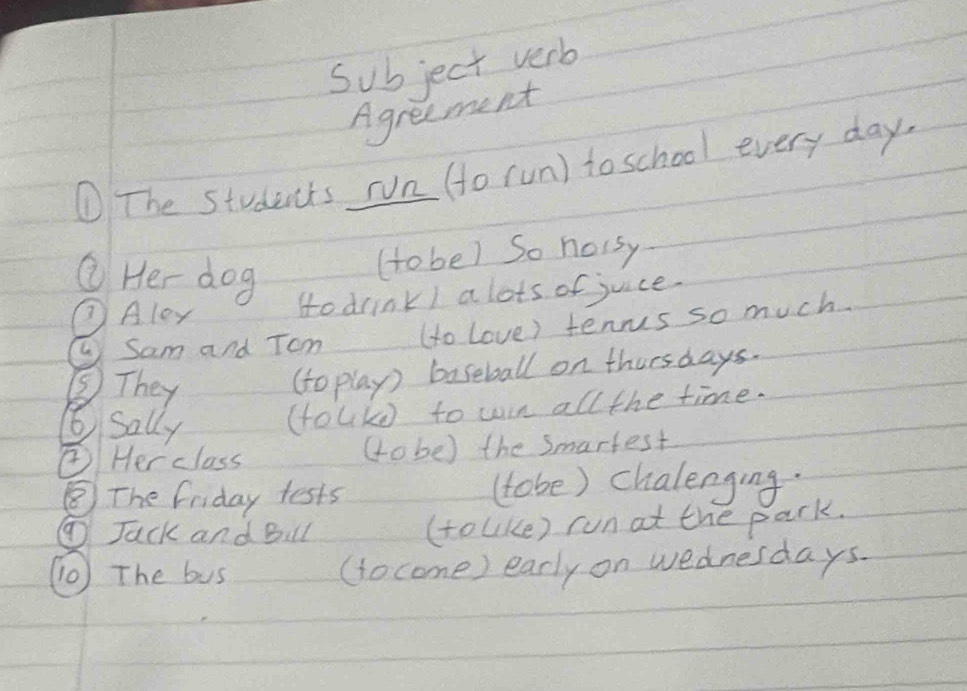 Subject verb
Agreement
① The students run (to run) to school every day.
② Her dog (to be) So noisy
③ Alex (to drink) a lots of juice.
④ Sam and Tom (to love) tennis so much.
⑤ They (to play) baseball on thursdays.
⑥ Sally (to like) to win all the time.
⑦ Her class (to be) the smartest
⑧ The friday tests (to be) Chalenging.
⑨ Jack and Bill (to like) run at the park.
⑩ The bus (to come) early on wednesdays.